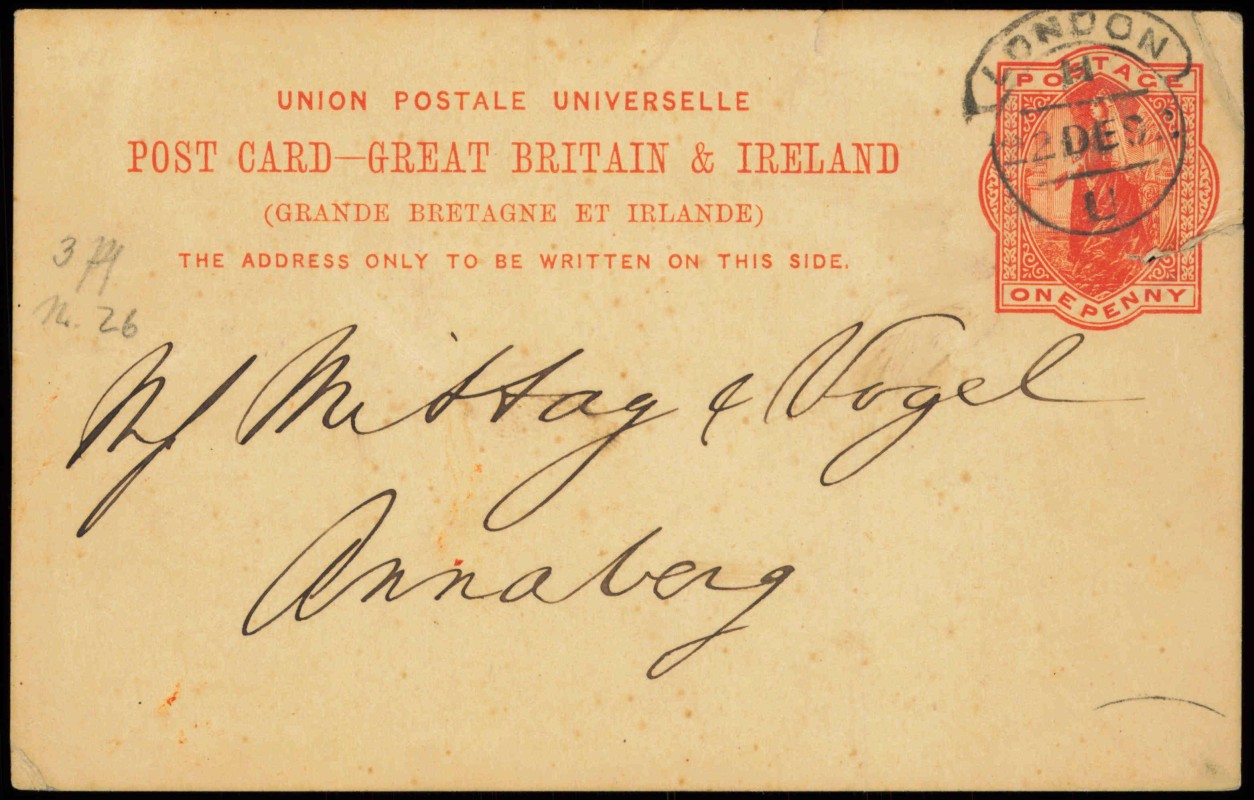 LONDON
H
2 DE 9
U
POSTAGE
ONE PENNY
UNION POSTALE UNIVERSELLE
POST CARD—GREAT BRITAIN & IRELAND
(GRANDE BRETAGNE ET IRLANDE)
THE ADDRESS ONLY TO BE WRITTEN ON THIS SIDE.
3
26
Mittag & Vogel
Annaberg